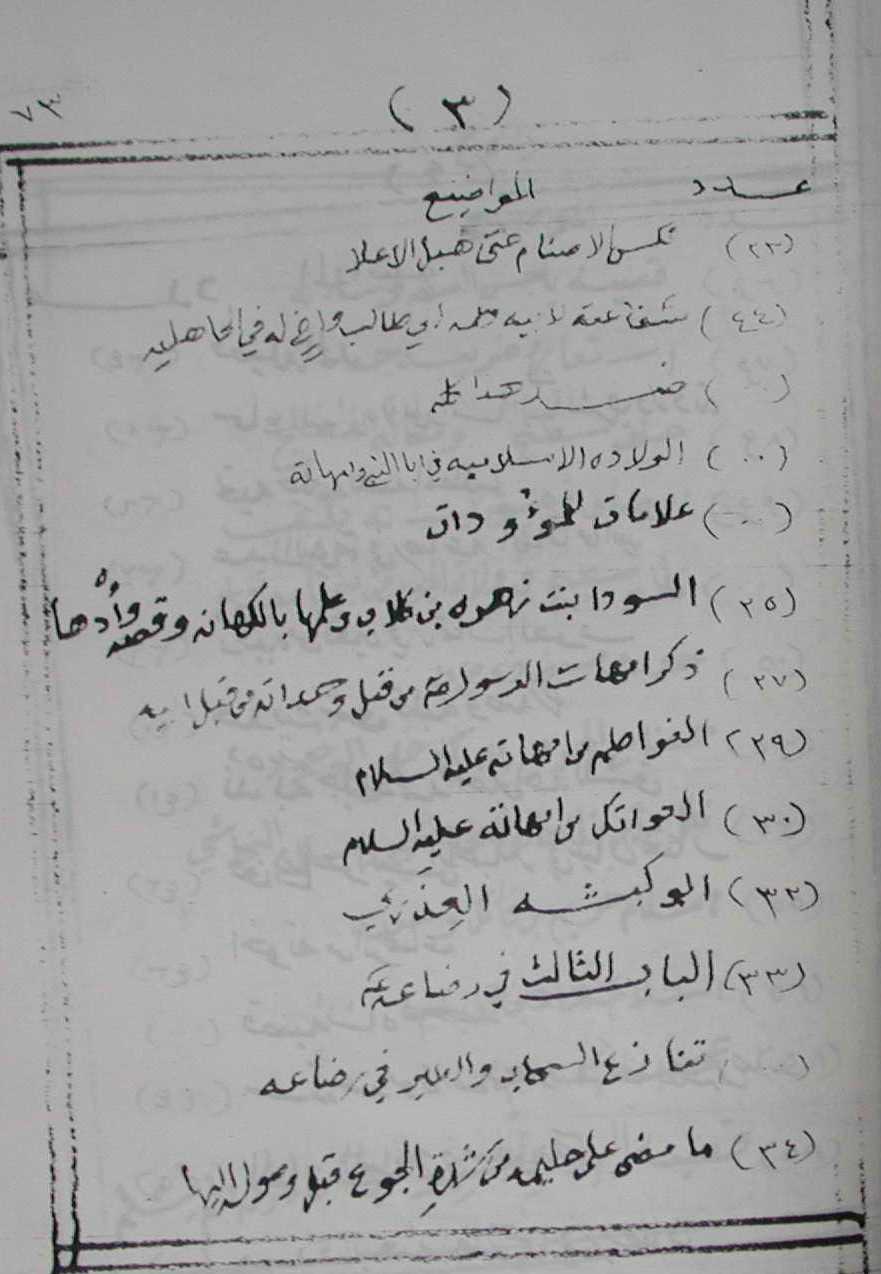 (٣)
٧٣
عدد المواضيع
(٢٣) نكس الاصنام حتى هبل الاعلا
(٤٤) شفاعته لابيه وامه وابي طالب واخ له في الجاهليه
(٠٠)
(٠٠) الولاده الاسلاميه في ابا النبي وامهاته
(٠٠) علامات للموؤودات
(٢٥) السودا بنت زهره بن كلاب وعلمها بالكهانه وقصه وأدها
(٢٧) ذكر امهات الرسول من قبل وجداته من قبل ابيه
(٢٩) الفواطم من امهاته عليه السلام
(٣٠) العواتك من امهاته عليه السلام
(٣٢) ابو كبشه
(٣٣) الباب الثالث في رضاعه
(٠٠) تنازع السحاب والطير في رضاعه
(٣٤) ما مضى على حليمه من شدة الجوع قبل وصوله اليها